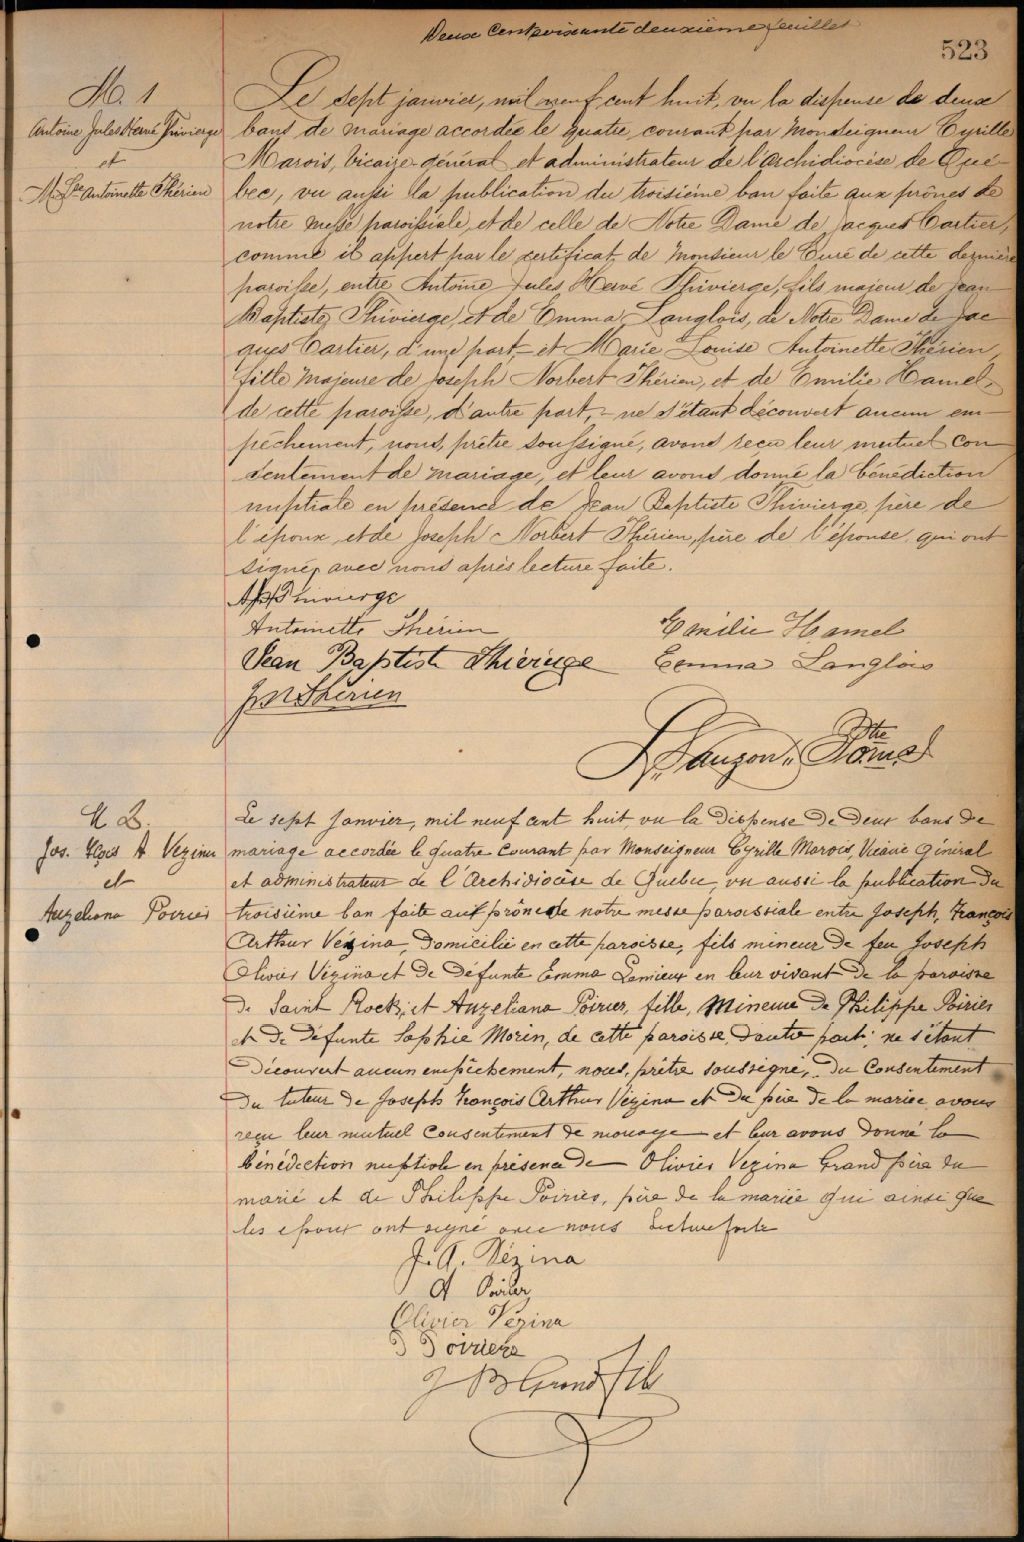 Deux cent soixante deuxième feuillet
523
M. 1
Antoine Jules Hervé Thivierge
et
M. Lse Antoinette Thérien
Le sept janvier, mil neuf cent huit, vu la dispense de deux
bans de mariage accordée le quatre courant par Monseigneur Cyrille
Marois, Vicaire-général et administrateur de l'archidiocèse de Qué-
bec, vu aussi la publication du troisième ban faite aux prônes de
notre messe paroissiale, et de celle de Notre Dame de Jacques Cartier,
comme il appert par le certificat de Monsieur le Curé de cette dernière
paroisse, entre Antoine Jules Hervé Thivierge, fils majeur de Jean
Baptiste Thivierge, et de Emma Langlois, de Notre Dame de Jac
ques Cartier, d'une part, et Marie Louise Antoinette Thérien,
fille majeure de Joseph Norbert Thérien, et de Emilie Hamel,
de cette paroisse, d'autre part, - ne s'étant découvert aucun em-
pêchement, nous, prêtre soussigné, avons reçu leur mutuel con
sentement de mariage, et leur avons donné la bénédiction
nuptiale en présence de Jean Baptiste Thivierge, père de
l'époux et de Joseph Norbert Thérien, père de l'épouse, qui ont
signé, avec nous après lecture faite.
Thivierge
Antoinette Thérien
Emilie Hamel
Jean Baptiste Thivierge
Emma Langlois
J N Thérien
Lauzon Ptre
M 2.
Jos. Frçois A Vezina
et
Auzeliana Poirier
Le sept Janvier, mil neuf cent huit, vu la dispense de deux bans de
mariage accordée le quatre courant par Monseigneur Cyrille Marois, Vicaire Général
et administrateur de l'Archidiocèse de Quebec, vu aussi la publication du
troisième ban faite au prône de notre messe paroissiale entre Joseph, François
Arthur Vézina, domicilié en cette paroisse, fils mineur de feu Joseph
Olivier Vézina et de défunte Emma Lemieux en leur vivant de la paroisse
de Saint Roch, et Auzeliana Poirier, fille, Mineure de Philippe Poirier
et de défunte Sophie Morin, de cette paroisse d'autre part; ne s'étant
découvert aucun empêchement, nous, prêtre soussigné, du consentement
du tuteur de Joseph François Arthur Vézina et du père de la mariée avons
reçu leur mutuel consentement de mariage et leur avons donné la
bénédiction nuptiale en présence de Olivier Vezina Grand père du
marié et de Philippe Poirier, père de la mariée qui ainsi que
les époux ont signé avec nous Lecture faite
J. A. Vézina
A Poirier
Olivier Vézina
P Poirier
J B Grond Fils